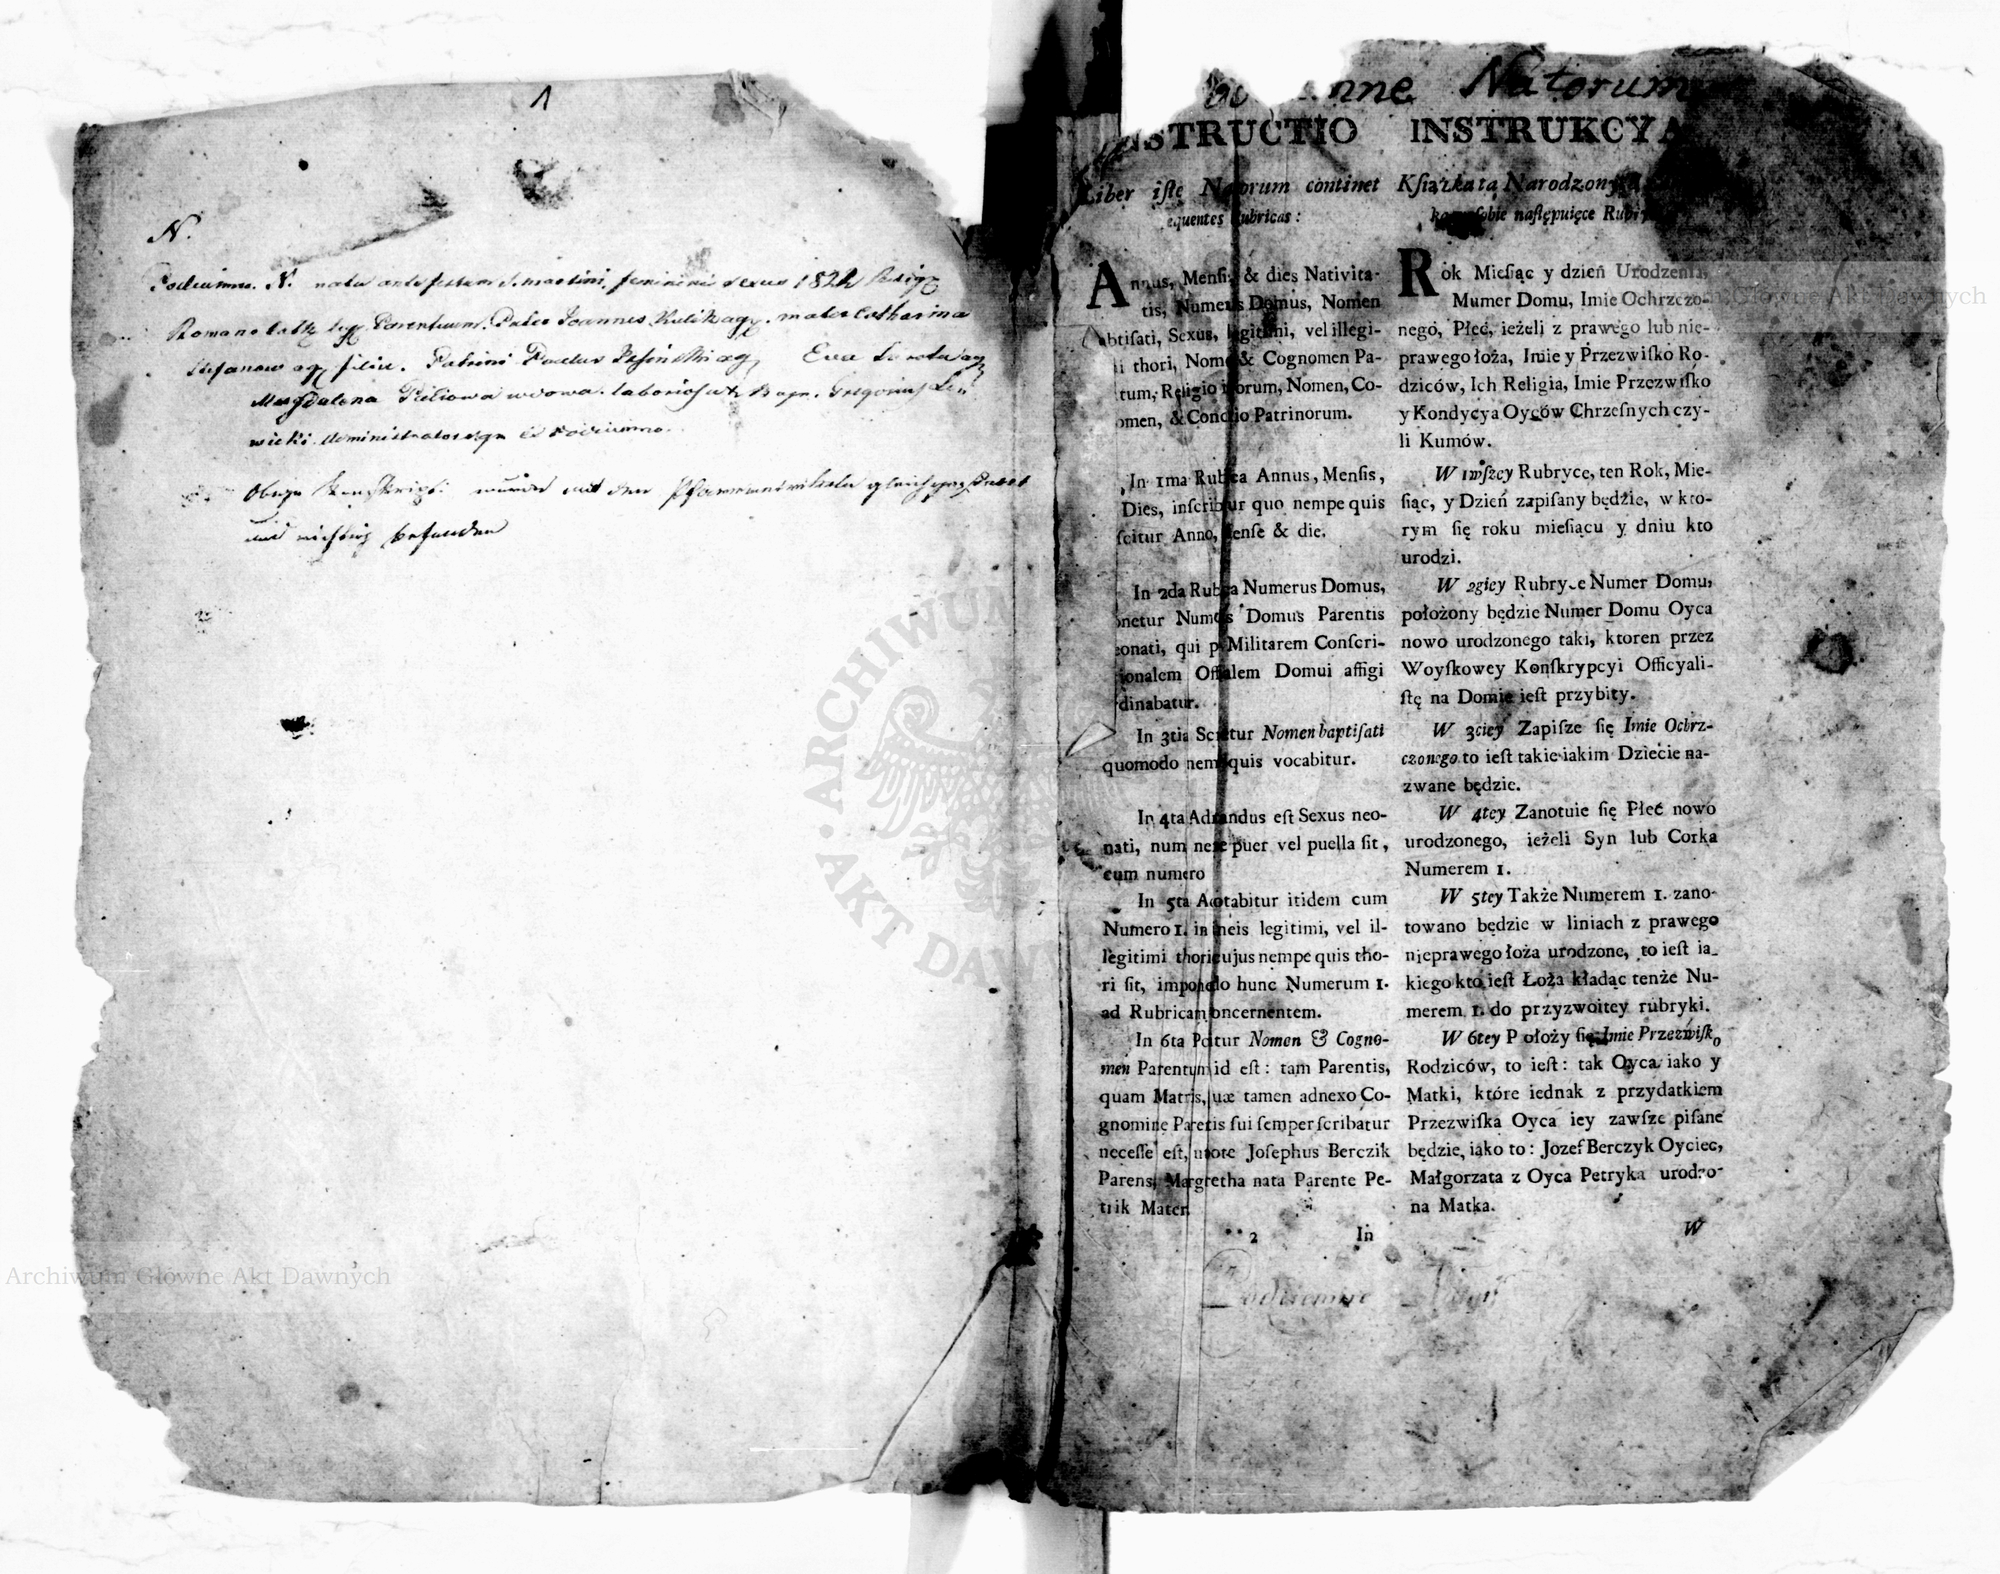 1
N.
Podciemne. N. nata ante festum S. Martini, feminini sexus 1824 Relig
Romano Cath leg. Parentum. Pater Joannes Kulik agr. mater Catharina
Stefanow agr filia. Patrini Paulus agr Eva agr
Magdalena widowa. Bapt. Gregorius Le=
wicki Administrator ex Podciemno.
und richtig befunden
Natorum
INSTRUCTIO
Liber iste Natorum continet
equentes Rubricas:
Annus, Mensis, & dies Nativita-
tis, Numerus Domus, Nomen
abtisati, Sexus, legitimi, vel illegi-
i thori, Nomen & Cognomen Pa-
tum, Religio illorum, Nomen, Co-
omen, & Conditio Patrinorum.
In 1ma Rubrica Annus, Mensis,
Dies, inscribitur quo nempe quis
scitur Anno, mense & die.
In 2da Rubrica Numerus Domus,
onetur Numerus Domus Parentis
eonati, qui per Militarem Conscri-
ionalem Officialem Domui affigi
dinabatur.
In 3tia Scribetur Nomen baptisati
quomodo nempe quis vocabitur.
In 4ta Adnotandus est Sexus neo-
nati, num nempe puer vel puella sit,
cum numero
In 5ta Adnotabitur itidem cum
Numero 1. in lineis legitimi, vel il-
legitimi thori cujus nempe quis tho-
ri sit, imponendo hunc Numerum 1.
ad Rubricam concernentem.
In 6ta Ponitur Nomen & Cogno-
men Parentum id est: tam Parentis,
quam Matris, quæ tamen adnexo Co-
gnomine Parentis sui semper scribatur
necesse est, utpote Josephus Berczik
Parens, Margretha nata Parente Pe-
trik Mater.
** 2 In
INSTRUKCYA
Książka ta Narodzonych
sobie następuięce Rubry
Rok Miesiąc y dzień Urodzenia,
Mumer Domu, Imie Ochrzczo-
nego, Płeć, ieżeli z prawego lub nie-
prawego łoża, Imie y Przezwisko Ro-
dziców, Ich Religia, Imie Przezwisko
y Kondycya Oyców Chrzesnych czy-
li Kumów.
W 1wszey Rubryce, ten Rok, Mie-
siąc, y Dzień zapisany będzie, w kto-
rym się roku miesiącu y dniu kto
urodzi.
W 2giey Rubryce Numer Domu,
położony będzie Numer Domu Oyca
nowo urodzonego taki, ktoren przez
Woyskowey Konskrypcyi Officyali-
stę na Domie iest przybity.
W 3ciey Zapisze się Imie Ochrz-
czonego to iest takie iakim Dziecie na-
zwane będzie.
W 4tey Zanotuie się Płeć nowo
urodzonego, ieżeli Syn lub Corka
Numerem 1.
W 5tey Także Numerem 1. zano-
towano będzie w liniach z prawego
nieprawego łoża urodzone, to iest ia-
kiego kto iest Łoża kładąc tenże Nu-
merem 1. do przyzwoitey rubryki.
W 6tey Położy się Imie Przezwisko
Rodziców, to iest: tak Oyca iako y
Matki, które iednak z przydatkiem
Przezwiska Oyca iey zawsze pisane
będzie, iako to: Jozef Berczyk Oyciec,
Małgorzata z Oyca Petryka urodzo-
na Matka.
W
Podciemne
ARCHIWUM
AKT DAW
Archiwum Główne Akt Dawnych
Główne Akt Dawnych